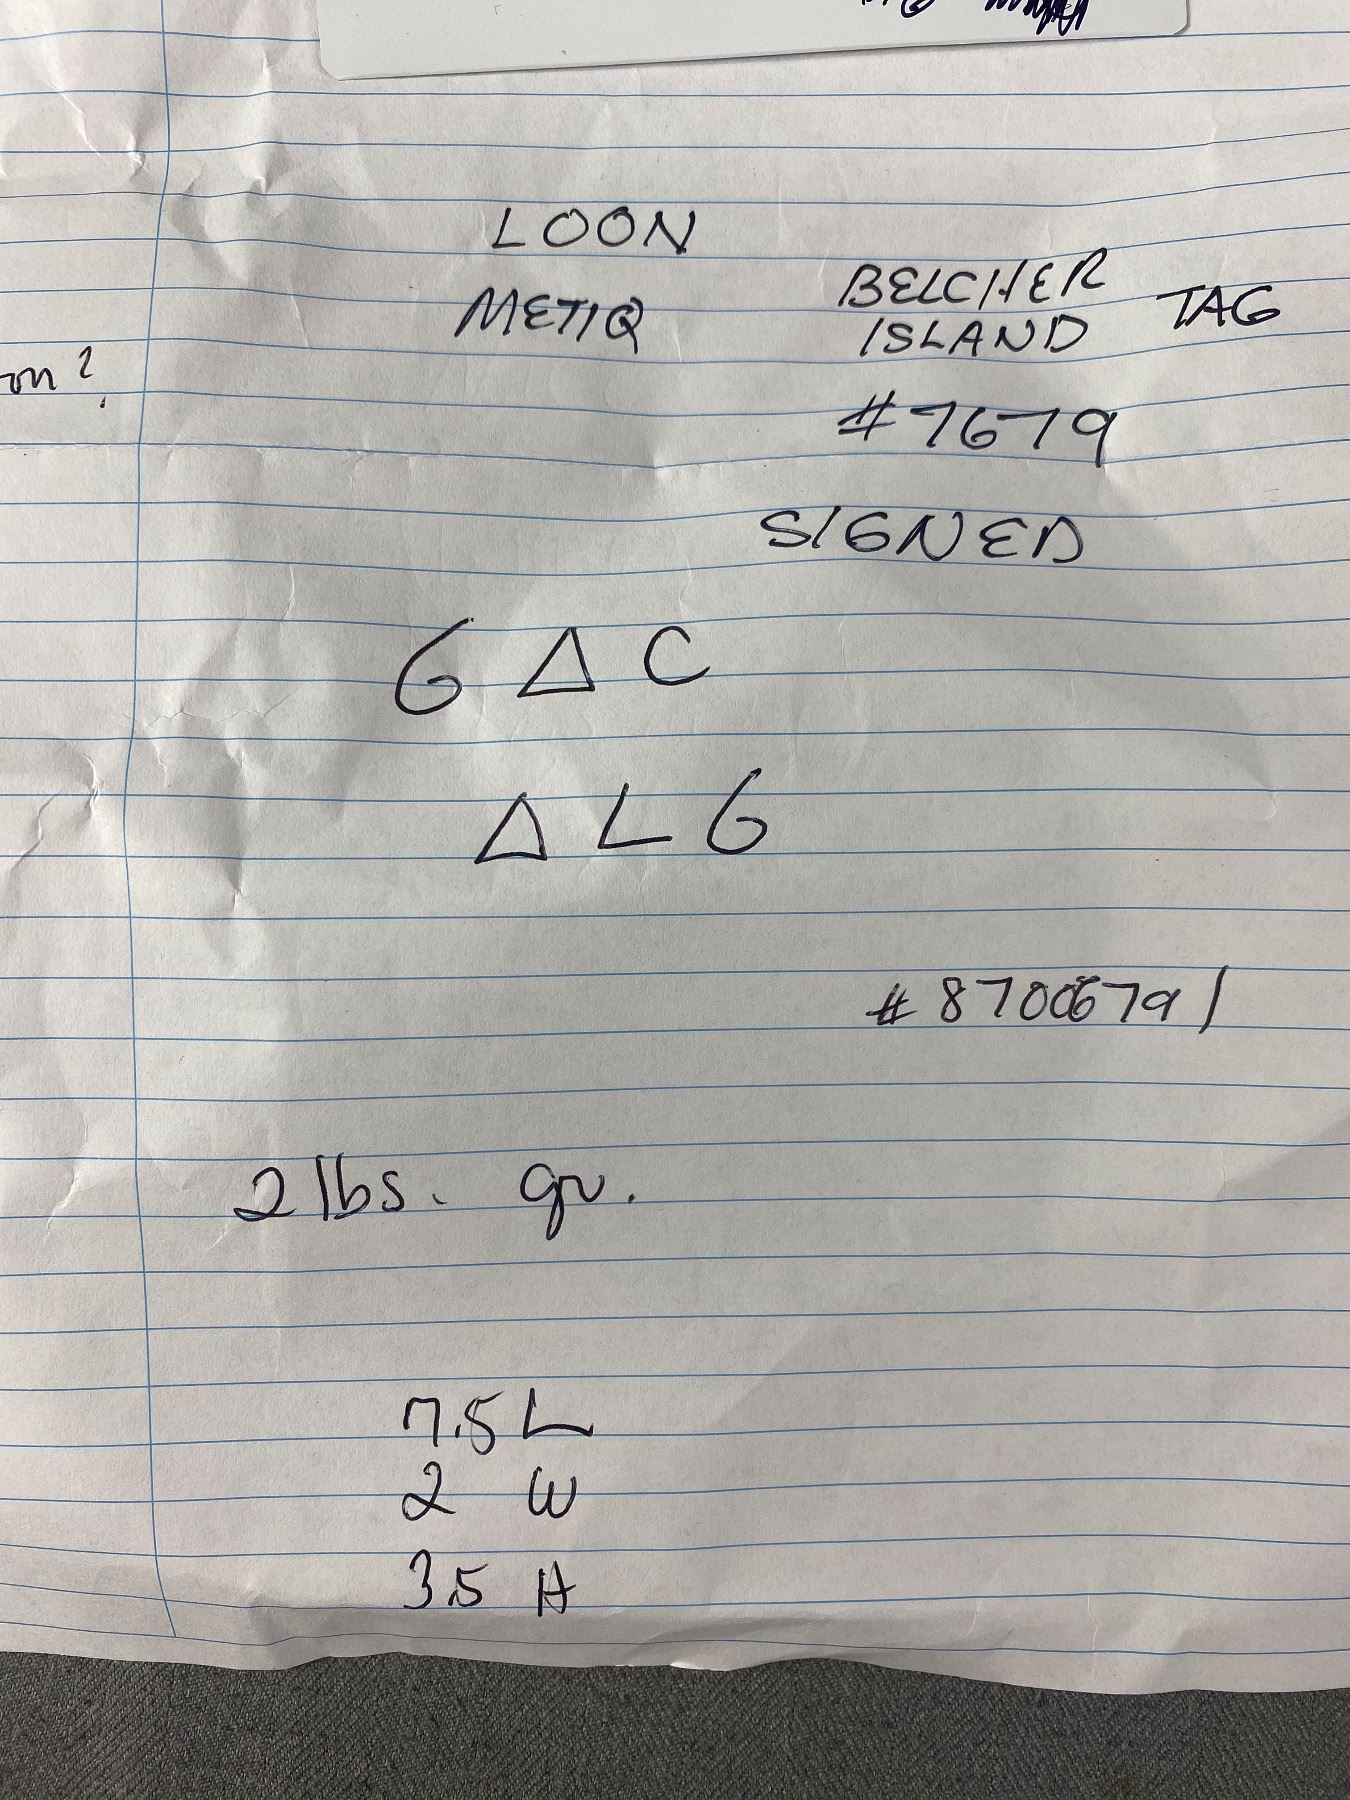 LOON
METIQ
BELCHER
ISLAND TAG
#7679
SIGNED
on?
ᑳ ᐃ ᑕ
ᐃ ᒪ ᑳ
#8700679 /
2 lbs. gr.
7.5 L
2 W
3.5 H